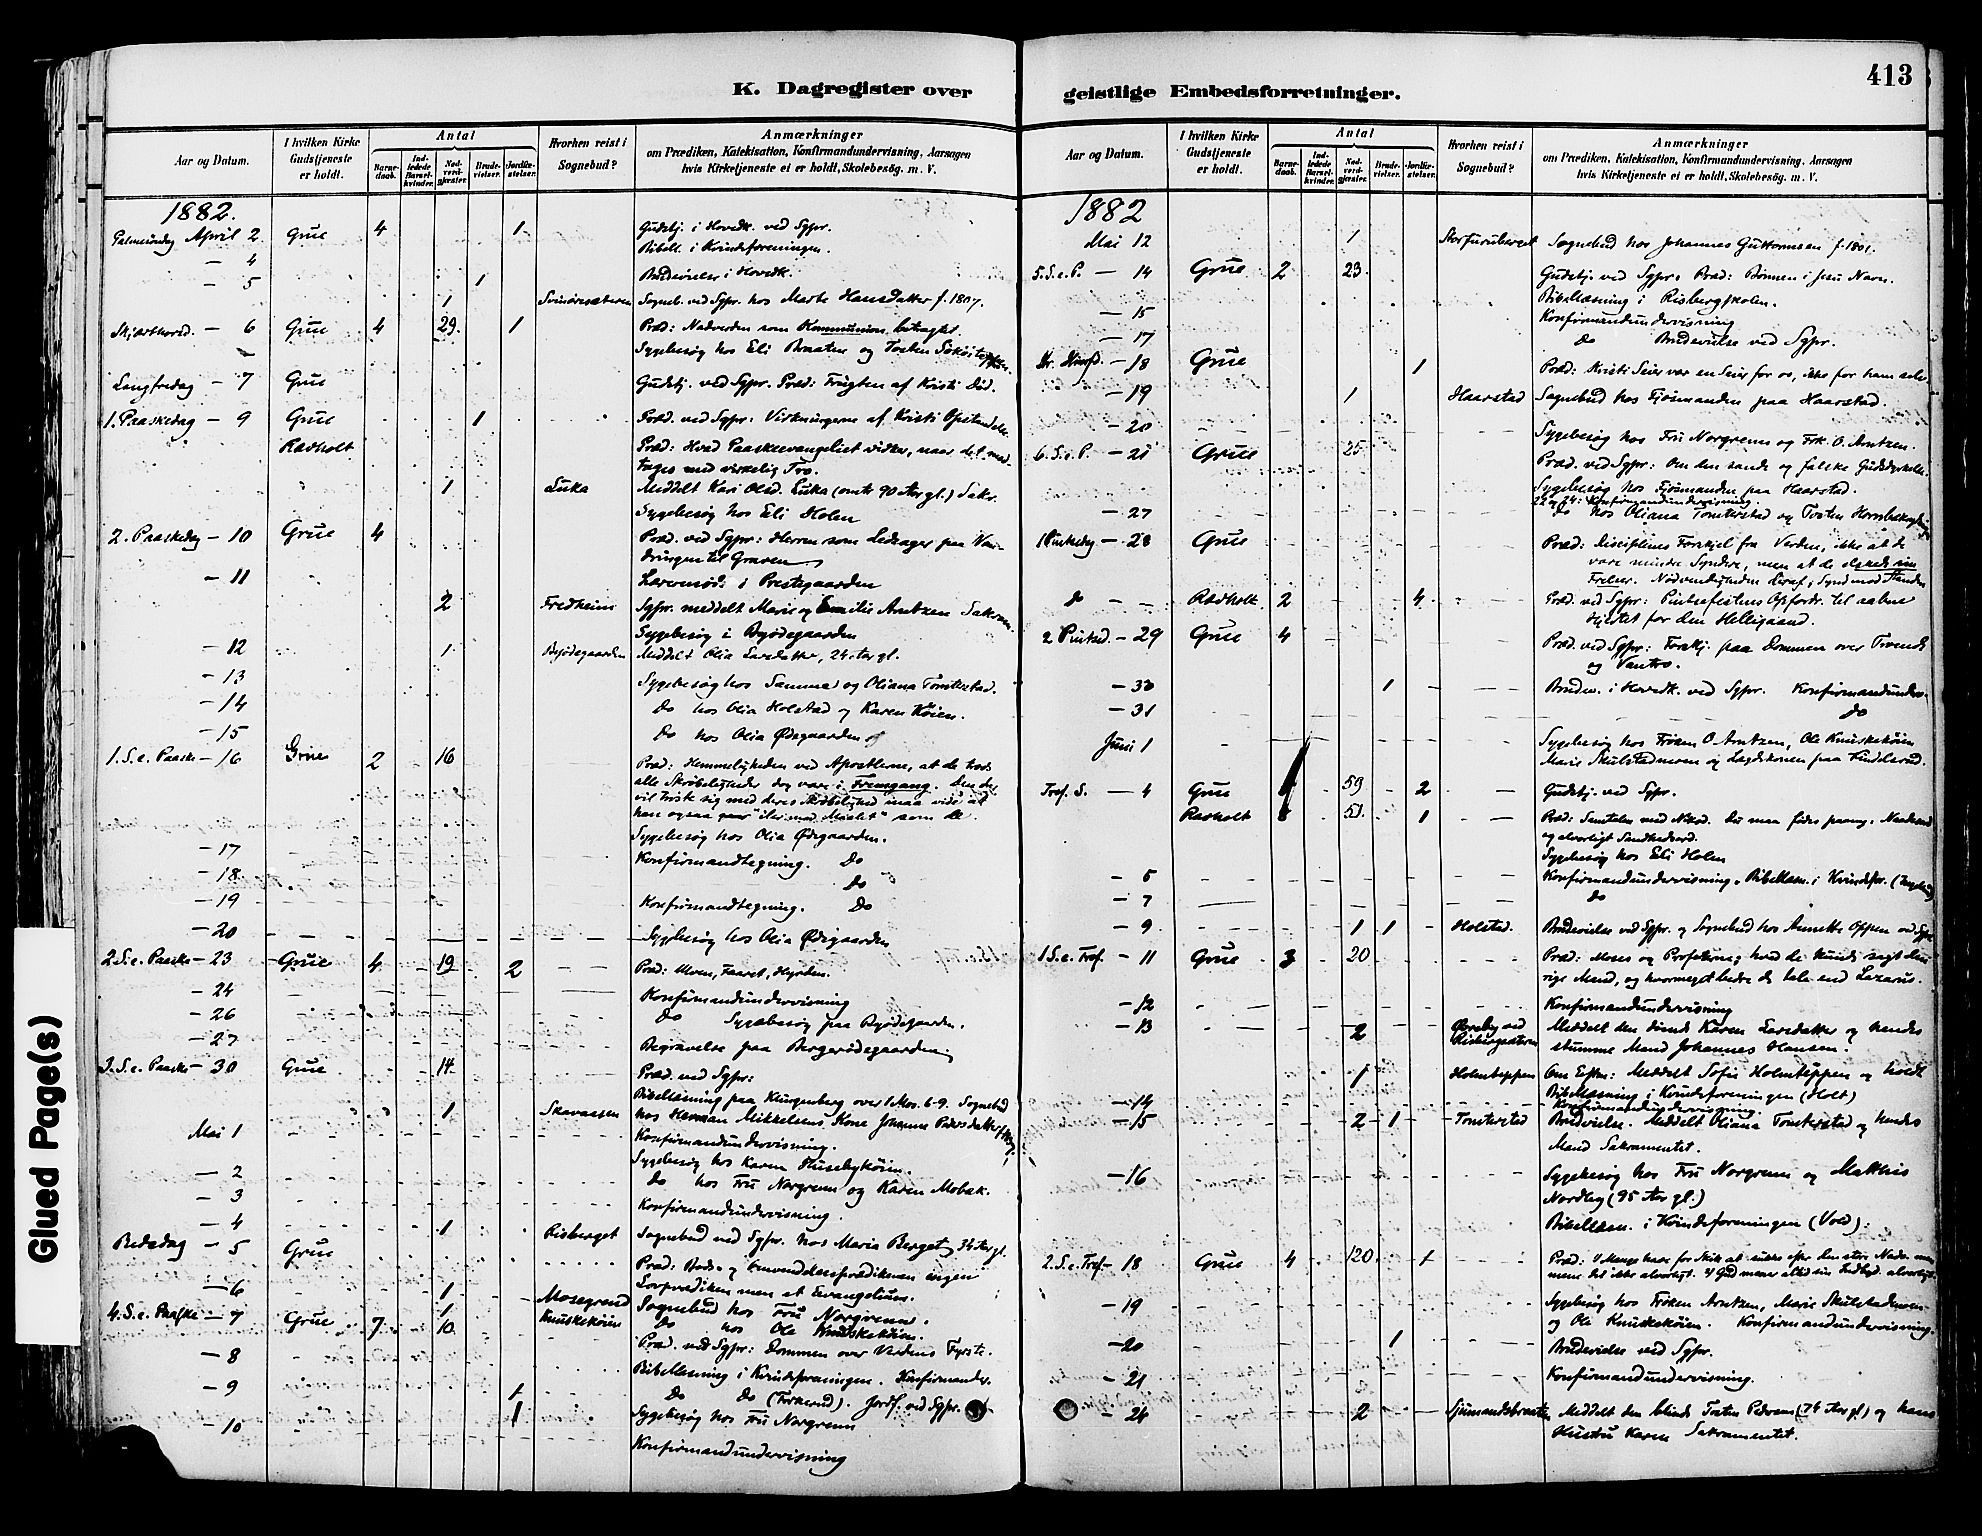 413
K. Dagregister over
Aar og Datum.
I hvilken Kirke Gudstjeneste er holdt.
Antal
Barnedaab.
Indledede Barselkvinder.
Nadverdgjæster.
Brudevielser.
Jordfæstelser.
Hvorhen reist i Sognebud?
Anmærkninger
om Prædiken, Katekisation, Konfirmandundervisning, Aarsagen
hvis Kirketjeneste ei er holdt, Skolebesøg. m. V.
1882.
Palmesøndag April 2 Grue 4 1 Gudstj. i Hovedk. ved Sgpr.
- 4 Bibell. i Kvindeforeningen.
- 5 1 Brudevielse i Hovedk.
1 Sogneb. ved Sgpr. hos Marte Hansdatter f. 1807.
Skjærthorsd. - 6 Grue 4 29 1 Præd: Nadverden som Kommunion betragtet.
Sygebesøg hos Eli Braaten og Torsten
Langfredag - 7 Grue Gudstj. ved Sgpr. Præd: Frugten af Kristi Død.
1. Paaskedag - 9 Grue 1 Præd. ved Sgpr. Virkningerne af Kristi Opstandelse
Radholt Præd: Hvad Paaskeevangeliet virker, naar det mod-
tages med virkelig Tro.
1 Luka Meddelt Kari Olsd. Luka (omtr 90 Aar gl.) Sakr.
Sygebesøg hos Eli Holen
2. Paaskedag - 10 Grue 4 Præd. ved Sgpr: Herren som Ledsager paa Van-
dringen til Graven
- 11 Lærermøde i Prestegaarden
2 Fredheim Sgpr. meddelt Marie og Emilie Arntzen Sakram.
Sygebesøg i Byødegaarden
- 12 1 Byødegaarden Meddelt Olia Larsdatter, 24 Aar gl.
- 13 Sygebesøg hos Samme og Oliana Tomterstad.
- 14 Do hos Olia Holstad og Karen Køien.
- 15 Do hos Olia Ødegaarden
1. S. e. Paaske - 16 Grue 2 16 Præd: Hemmeligheden ved Apostlerne, at de trods
alle Skrøbeligheder dog vare i Fremgang. Den der
vil trøste sig med deres Skrøbelighed maa vide at
han ogsaa gaar
Sygebesøg hos Olia Ødegaarden.
- 17 Konfirmandtegning. Do
- 18 Do
- 19 Konfirmandtegning. Do
- 20 Sygebesøg hos Olia Ødegaarden
2. S. e. Paaske - 23 Grue 4 19 2 Præd: Ulven, Faaret, Hyrden.
- 24 Konfirmandundervisning
- 26 Do Sygebesøg paa Byødegaarden.
- 27 Begravelse paa Bergerødegaarden
3. S. e. Paaske - 30 Grue 14 Præd. ved Sgpr:
Bibellæsning paa Klingenberg over 1 Mos. 6-9. Sognebud
1 Skavaasen hos Herman Mikkelsens Kone Johanne Pedersdatter
Mai 1 Konfirmandundervisning.
Sygebesøg hos Karen Husebykøien.
- 2 Do hos Fru Norgrenn og Karen Mobæk.
- 3 Konfirmandundervisning.
- 4 1 Risberget Sognebud ved Sgpr. hos Maria Berget, 34 Aar gl.
Bededag - 5 Grue Præd: Bods- og Omvendelsesprædikenen ingen
Lovprædiken men et Evangelium.
- 6 1 Mosegrend Sognebud hos Fru Norgrenn.
4. S. e. Paaske - 7 Grue 7 1 10 Knuskekøien Do hos Ole Knuskekøien.
Præd. ved Sgpr: Dommen over Verdens Fyrste.
- 8 Bibellæsning i Kvindeforeningen. Konfirmander.
- 9 1 Do Do (Forkerud). Jordf. ved Sgpr.
1 Sygebesøg hos Fru Norgrenn
- 10 Konfirmandundervisning
geistlige Embedsforretninger.
Aar og Datum.
I hvilken Kirke Gudstjeneste er holdt.
Antal
Barnedaab.
Indledede Barselkvinder.
Nadverdgjæster.
Brudevielser.
Jordfæstelser.
Hvorhen reist i Sognebud?
Anmærkninger
om Prædiken, Katekisation, Konfirmandundervisning, Aarsagen
hvis Kirketjeneste ei er holdt, Skolebesøg. m. V.
1882
Mai 12 1 Storfuruberget Sognebud hos Johannes Guttormsen f. 1801.
5. S. e. P. - 14 Grue 2 23 Gudstj. ved Sgpr. Præd: Bønnen i Jesu Navn.
Bibellæsning i Risbergskolen.
- 15 Konfirmandundervisning
- 17 Do Brudevielse ved Sgpr.
Kr. Himf. - 18 Grue 1 Præd: Kristi Seier var en Seier for os, ikke for ham selv
- 19 1 Haarstad Sognebud hos Fjøsmanden paa Haarstad.
- 20 Sygebesøg hos Fru Norgrenn og Frk. O. Arntzen.
6. S. e. P. - 21 Grue 25 Præd. ved Sgpr: Om den sande og falske Gudsdyrkelse.
Sygebesøg hos Fjøsmanden paa Haarstad.
22 og 24: Konfirmandundervisning
- 27 Do hos Oliana Tomterstad og Torsten
1 Pintsedag - 28 Grue Præd: Disciplenes Forskjel fra Verden, ikke at de
vare mindre Syndere, men at de elskede sin
Frelser. Nødvendigheden deraf;
do - - Radholt 2 4 Præd. ved Sgpr: Pintsefestens Opfordr. til aabne
Hjertet for den Helligaand.
2 Pintsed. - 29 Grue 4 Præd. ved Sgpr: Forskj. paa Dommen over Troende
og Vantro.
- 30 1 Brudev. i Hovedk. ved Sgpr. Konfirmandunder.
- 31 Do
Juni 1 Sygebesøg hos Frøken O Arntzen, Ole Knuskekøien
Marie Skulstadmoen og
Tref. S. - 4 Grue 59 2 Gudstj. ved Sgpr.
Radholt 51 1 Præd: Samtalen med Nikod. Du maa fødes paany.
og alvorligt Sandhedsord.
Sygebesøg hos Eli Holen
- 5 Konfirmandundervisning. Bibellæsn. i Kvindefor.
- 7 Do
- 9 1 1 Holstad. Brudevielse ved Sgpr. og Sognebud hos Annette Oppen ved Sgpr
1 S. e. Tref. - 11 Grue 3 20 Præd: Moses og Profeterne; hvad de kunde sagt den
rige Mand, og hvormeget bedre de tale end Lazarus.
- 12 Konfirmandundervisning
- 13 2 Øvreby ved Risbergsæteren Meddelt den døende Karen Larsdatter og hendes
stumme Mand Johannes Hansen.
1 Holmteppen Om Eftm: Meddelt Sofie Holmteppen og holdt
- 14 Bibellæsning i Kvindeforeningen (Holt)
Konfirmandundervisning.
- 15 2 1 Tomterstad Brudevielse. Meddelt Oliana Tomterstad og hendes
Mand Sakramentet.
- 16 Sygebesøg hos Fru Norgrenn og Mathis
Nordby (95 Aar gl.)
Bibellæsn. i Kvindeforeningen (Vold).
2. S. e. Tref - 18 Grue 4 120 1 Præd: 1) Mange have for Skik at sukke efter den store Nadv. men
mene det ikke alvorligt. 2) Gud mener altid sin Indbyd. alvorligt.
- 19 Sygebesøg hos Frøken Arntzen, Marie Skulstadmoen
og Ole Knuskekøien. Konfirmandundervisning.
- 20 1 Brudevielse ved Sgpr.
- 21 Konfirmandundervisning.
- 24 2 Sjømandsbraaten Meddelt den blinde Torsten Pedersen (74 Aar gl.) og hans
Hustru Karen Sakramentet.
Glued Page(s)